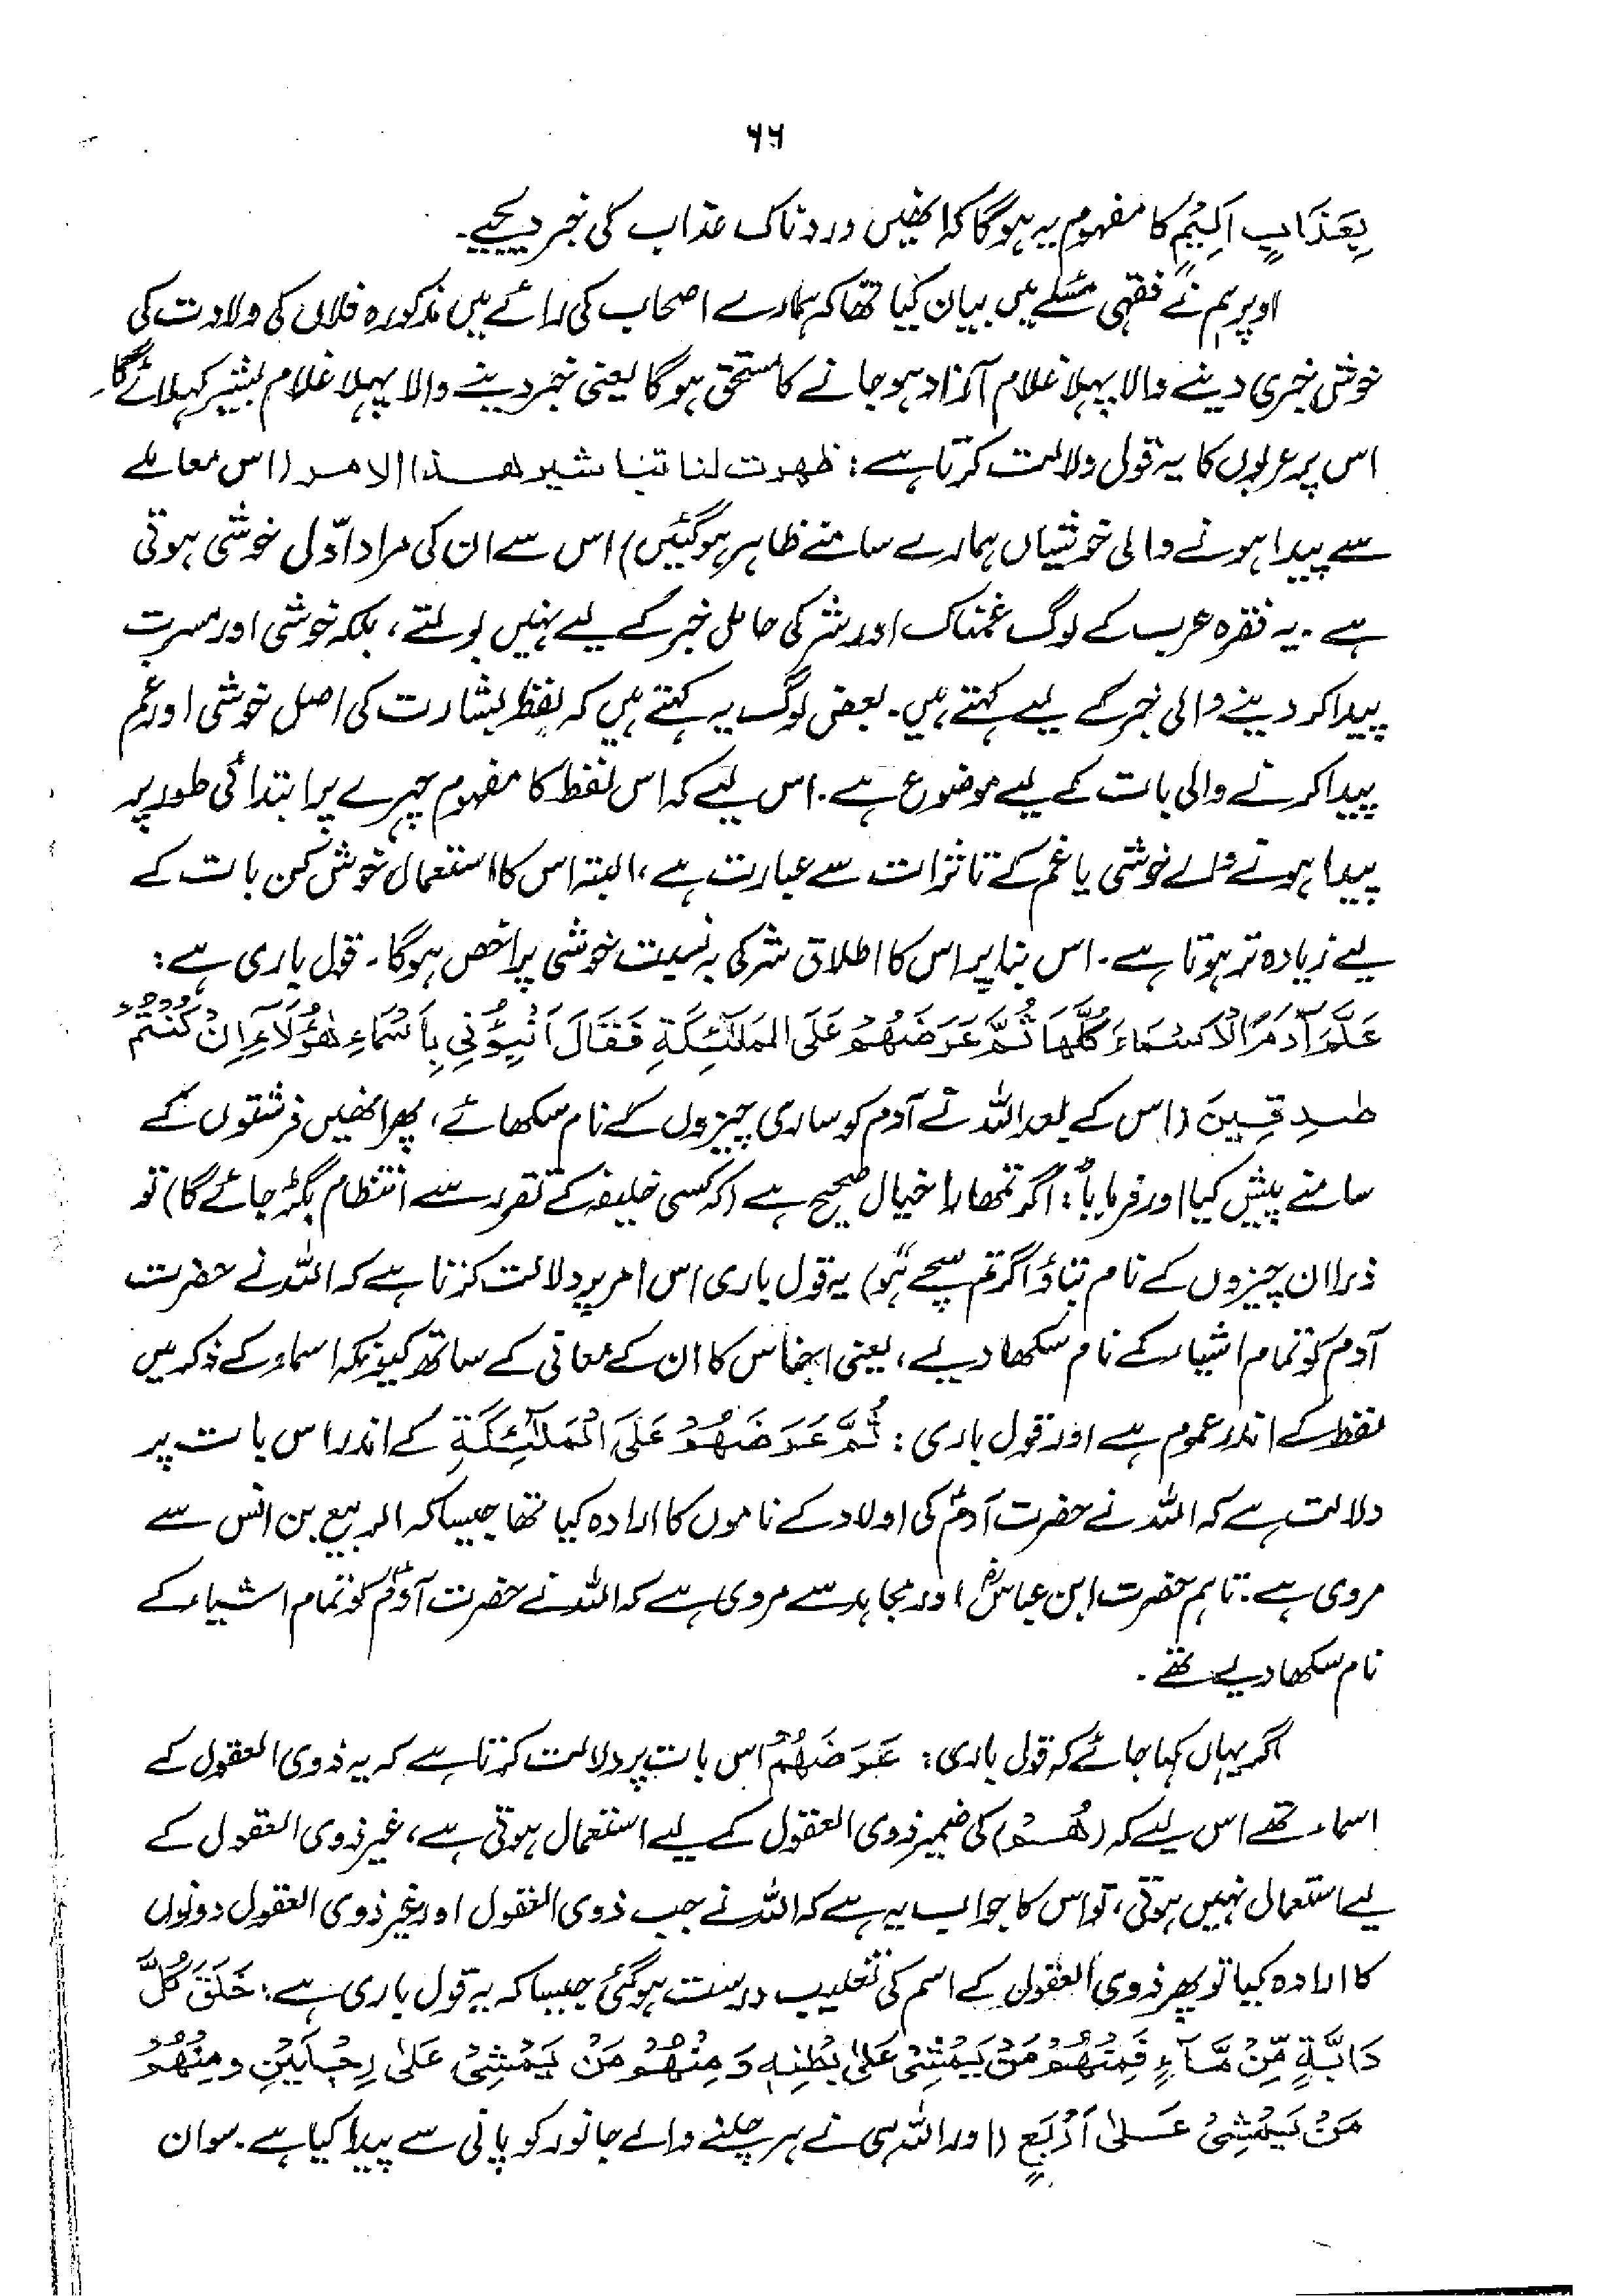 ۶۶
بِعَذَابٍ اَلِیْمٍ کا مفہوم یہ ہوگا کہ انھیں دردناک عذاب کی خبر دیجیے۔
اوپر ہم نے فقہی مسئلے میں بیان کیا تھا کہ ہمارے اصحاب کی رائے میں مذکورہ فلاں کی ولادت کی
خوش خبری دینے والا پہلا غلام آزاد ہو جانے کا مستحق ہوگا یعنی خبر دینے والا پہلا غلام بشیر کہلائے گا۔
اس پر عربوں کا یہ قول دلالت کرتا ہے: ظهرت لنا تباشير هذا الامر (اس معاملے
سے پیدا ہونے والی خوشیاں ہمارے سامنے ظاہر ہوگئیں) اس سے ان کی مراد اوّل خوشی ہوتی
ہے۔ یہ فقرہ عرب کے لوگ غمناک اور شر کی حامل خبر کے لیے نہیں بولتے، بلکہ خوشی اور مسرت
پیدا کر دینے والی خبر کے لیے کہتے ہیں۔ بعض لوگ یہ کہتے ہیں کہ لفظ بشارت کی اصل خوشی اور غم
پیدا کرنے والی بات کے لیے موضوع ہے۔ اس لیے کہ اس لفظ کا مفہوم چہرے پر ابتدائی طور پر
پیدا ہونے والے خوشی یا غم کے تاثرات سے عبارت ہے، البتہ اس کا استعمال خوش کن بات کے
لیے زیادہ تر ہوتا ہے۔ اس بنا پر اس کا اطلاق شر کی بہ نسبت خوشی پر اخص ہوگا۔ قول باری ہے:
عَلَّمَ آدَمَ الْاَسْمَاءَ كُلَّهَا ثُمَّ عَرَضَهُمْ عَلَى الْمَلٰٓئِكَةِ فَقَالَ اَنْبِئُوْنِي بِاَسْمَاءِ هٰؤُلَاءِ اِنْ كُنْتُمْ
صٰدِقِينَ (اس کے بعد اللہ نے آدم کو ساری چیزوں کے نام سکھائے، پھر انھیں فرشتوں کے
سامنے پیش کیا اور فرمایا: اگر تمھارا خیال صحیح ہے (کہ کسی خلیفہ کے تقرر سے انتظام بگڑ جائے گا) تو
ذرا ان چیزوں کے نام بتاؤ اگر تم سچے ہو) یہ قول باری اس امر پر دلالت کرتا ہے کہ اللہ نے حضرت
آدم کو تمام اشیاء کے نام سکھا دیے، یعنی اجناس کا ان کے معانی کے ساتھ کیونکہ اسماء کے ذکر میں
لفظ کے اندر عموم ہے اور قول باری: ثُمَّ عَرَضَهُمْ عَلَى الْمَلٰٓئِكَةِ کے اندر اس بات پر
دلالت ہے کہ اللہ نے حضرت آدمؑ کی اولاد کے ناموں کا ارادہ کیا تھا جیسا کہ الربیع بن انس سے
مروی ہے۔ تاہم حضرت ابن عباسؓ اور مجاہد سے مروی ہے کہ اللہ نے حضرت آدمؑ کو تمام اشیاء کے
نام سکھا دیے تھے۔
اگر یہاں کہا جائے کہ قول باری: عَرَضَهُمْ اس بات پر دلالت کرتا ہے کہ یہ ذوی العقول کے
اسماء تھے اس لیے کہ (هُمْ) کی ضمیر ذوی العقول کے لیے استعمال ہوتی ہے، غیر ذوی العقول کے
لیے استعمال نہیں ہوتی، تو اس کا جواب یہ ہے کہ اللہ نے جب ذوی العقول اور غیر ذوی العقول دونوں
کا ارادہ کیا تو پھر ذوی العقول کے اسم کی تغلیب درست ہوگئی جیسا کہ یہ قول باری ہے: خَلَقَ كُلَّ
دَابَّةٍ مِّنْ مَّآءٍ فَمِنْهُمْ مَنْ يَمْشِیْ عَلیٰ بَطْنِهٖ وَمِنْهُمْ مَنْ يَمْشِیْ عَلیٰ رِجْلَيْنِ وَمِنْهُمْ
مَنْ يَمْشِیْ عَلیٰ اَرْبَعٍ (اور اللہ ہی نے ہر چلنے والے جانور کو پانی سے پیدا کیا ہے۔ سو ان